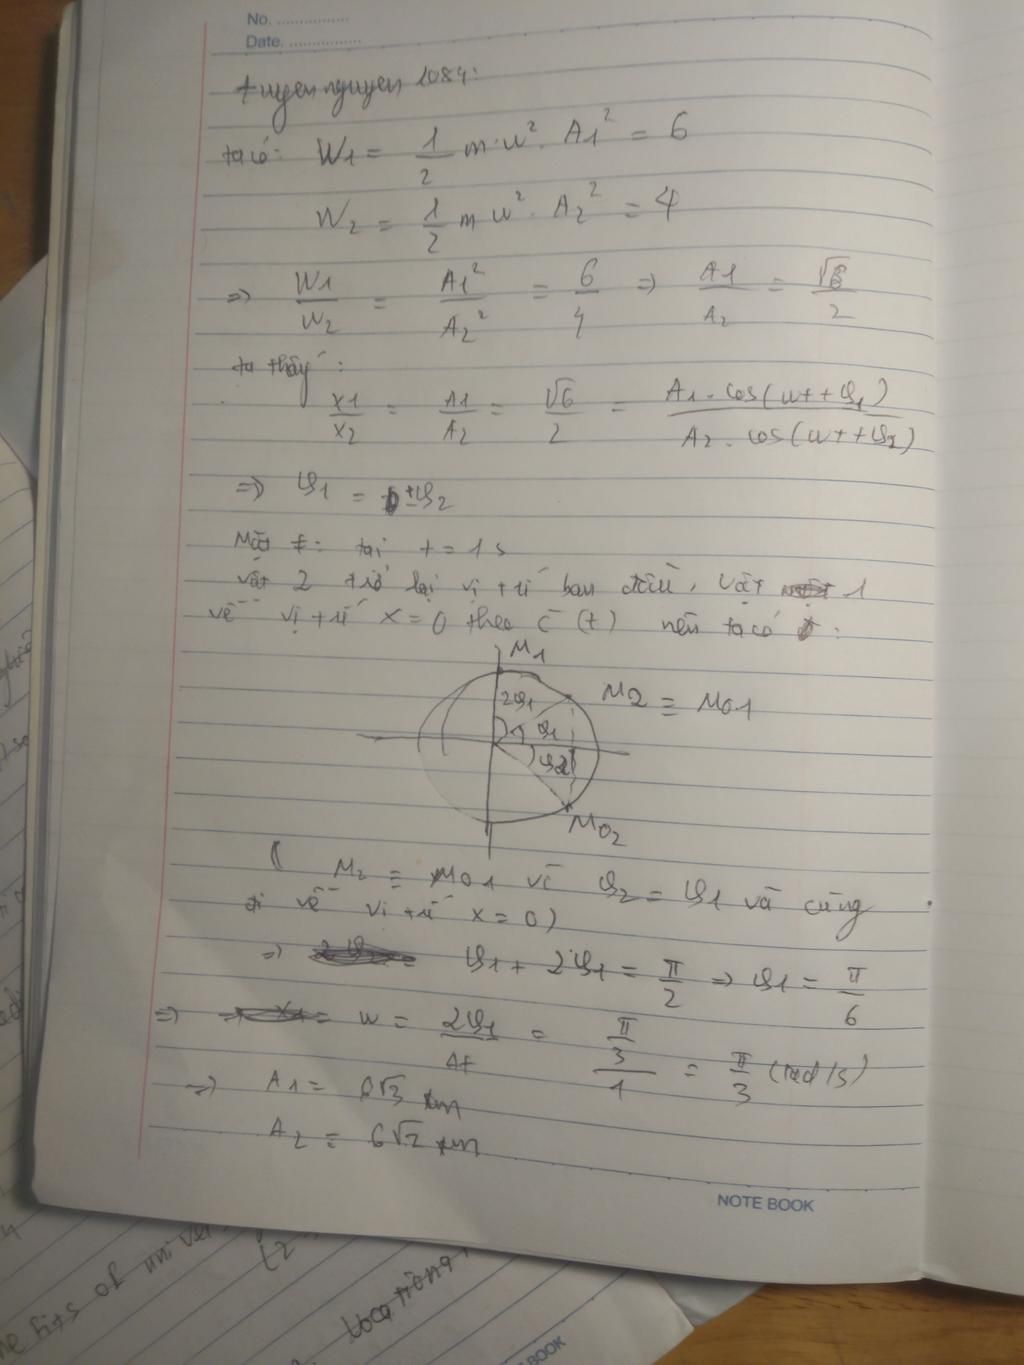 No. ................
Date. ................
tuyennguyen 1084:
ta có: W1 = 1/2 m.w². A1² = 6
W2 = 1/2 m w². A2² = 4
=> W1/W2 = A1²/A2² = 6/4 => A1/A2 = √6/2
ta thấy:
x1/x2 = A1/A2 = √6/2 = A1.cos(wt+φ1)/A2.cos(wt+φ2)
=> φ1 = ±φ2
Mặt ≠: tại t=1s
vật 2 trở lại vị trí ban đầu, vật 1
về vị trí x=0 theo c (t) nên ta có:
M1
2φ1
M2 ≡ M01
φ1
φ2
M02
( M2 ≡ M01 vì φ2 = φ1 và cùng
đi về vị trí x=0)
=> φ1 + 2φ1 = π/2 => φ1 = π/6
=> w = 2φ1/Δt = π/3/1 = π/3 (rad/s)
=> A1 = 6√3 cm
A2 = 6√2 cm
NOTE BOOK
of uni ver
location
BOOK